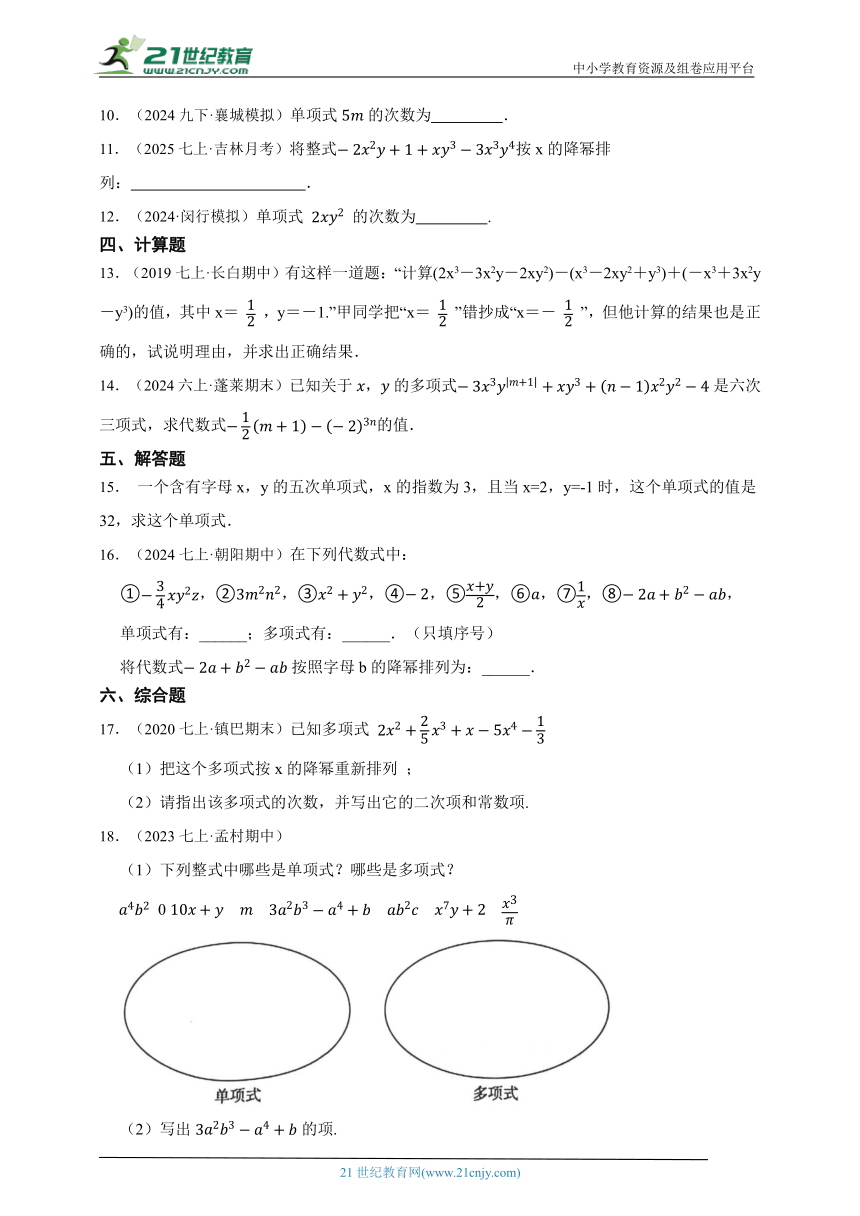 21世纪教育
WWW.21CNJY.COM
中小学教育资源及组卷应用平台
10．（2024九下·襄城模拟）单项式5m的次数为________．
11．（2025七上·吉林月考）将整式−2x²y+1+xy³−3x³y⁴按x的降幂排
列：____________________．
12．（2024·闵行模拟）单项式 2xy² 的次数为________．
四、计算题
13．（2019七上·长白期中）有这样一道题：“计算(2x³－3x²y－2xy²)－(x³－2xy²＋y³)＋(－x³＋3x²y
－y³)的值，其中x＝ 1/2 ，y＝－1.”甲同学把“x＝ 1/2 ”错抄成“x＝－ 1/2 ”，但他计算的结果也是正
确的，试说明理由，并求出正确结果．
14．（2024六上·蓬莱期末）已知关于x，y的多项式−3x³y^|m+1|+xy³+(n−1)x²y²−4是六次
三项式，求代数式−1/2(m+1)−(−2)³ⁿ的值．
五、解答题
15． 一个含有字母x，y的五次单项式，x的指数为3，且当x=2，y=-1时，这个单项式的值是
32，求这个单项式．
16．（2024七上·朝阳期中）在下列代数式中：
①−3/4xy²z，②3m²n²，③x²+y²，④−2，⑤(x+y)/2，⑥a，⑦1/x，⑧−2a+b²−ab，
单项式有：______；多项式有：______．（只填序号）
将代数式−2a+b²−ab按照字母b的降幂排列为：______．
六、综合题
17．（2020七上·镇巴期末）已知多项式 2x²+2/5x³+x−5x⁴−1/3
（1）把这个多项式按x的降幂重新排列 ；
（2）请指出该多项式的次数，并写出它的二次项和常数项.
18．（2023七上·孟村期中）
（1）下列整式中哪些是单项式？哪些是多项式？
a⁴b² 0 10x+y m 3a²b³−a⁴+b ab²c x⁷y+2 x³/π
单项式 多项式
（2）写出3a²b³−a⁴+b的项.
21世纪教育网(www.21cnjy.com)